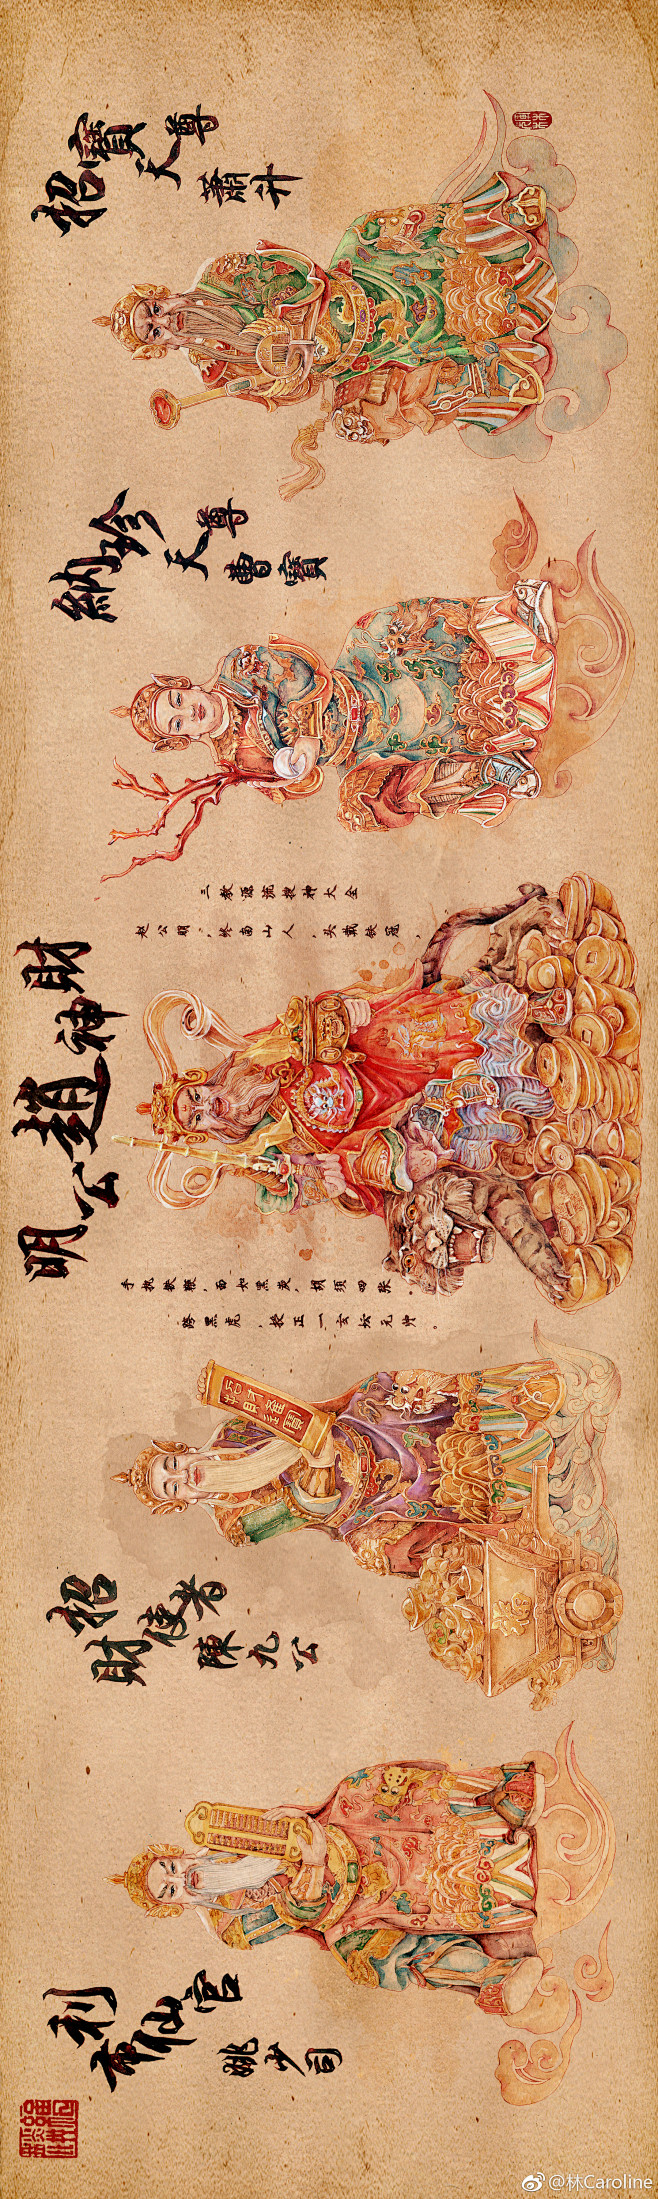 招寶天尊
蕭升
納珍天尊
曹寶
財神趙公明
三教源流搜神大全
赵公明，终南山人，头戴铁冠，
手执铁鞭，面如黑炭，胡须四张。
跨黑虎，授正一玄坛元帅。
招財使者
陳九公
利市仙官
姚少司
@林Caroline